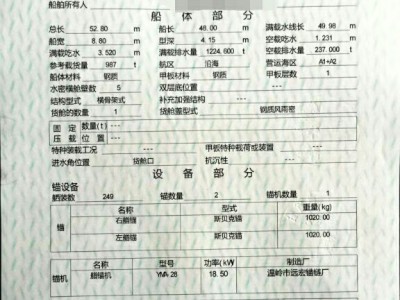 船舶所有人
船 体 部 分
总长 52.80 m 船长 48.00 m 满载水线长 49.98 m
船宽 8.80 m 型深 4.15 m 空载吃水 1.231 m
满载吃水 3.520 m 满载排水量 1224.600 t 空载排水量 237.000 t
参考载货量 987 t 航区 沿海 营运海区 A1+A2
船体材料 钢质 甲板材料 钢质 甲板层数 1
水密横舱壁数 5 双层底位置 ---
结构型式 横骨架式 补充加强结构 ---
货舱的数量 1 货舱盖型式 钢质风雨密
固 定 数量(t) ---
压 载 位 置 ---
特种装载工况 --- 甲板特种载荷或装置 ---
进水角位置 货舱口 抗沉性 ---
设 备 部 分
锚设备
舾装数 249 锚数量 2 锚机数量 1
名称 型式 重量(kg)
锚 右艏锚 斯贝克锚 1020.00
左艏锚 斯贝克锚 1020.00
名称 型号 功率(kW) 制造厂
锚机 艏锚机 YMA-28 18.50 温岭市远宏锚链厂